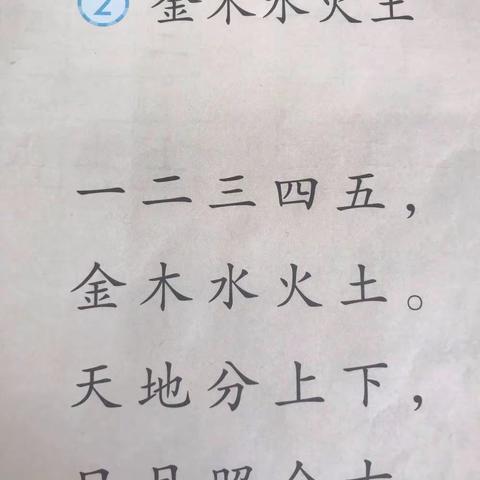 2 金木水火土
一二三四五，
金木水火土。
天地分上下，
日月照今古